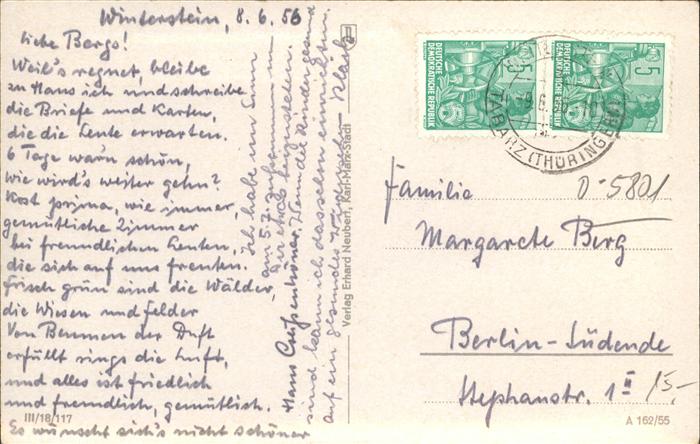 Winterstein, 8.6.56
Liebe Bergs!
Weil's regnet, bleibe
zu Haus ich und schreibe
die Briefe und Karten,
die die Leute erwarten.
6 Tage war'n schön,
wie wird's weiter gehn?
Kost prima, wie immer,
gemütliche Zimmer
bei freundlichen Leuten,
die sich auf uns freuten.
Frisch grün sind die Wälder,
die Wiesen und Felder
Von Blumen der Duft
erfüllt rings die Luft,
und alles ist friedlich
und freundlich, gemütlich.
Es wünscht sich's nicht schöner
Hans
Ich habe im Sinn
am 5.7.
Dir etwas beizusteuern.
Wenn die Kinder gesund
sind kann ich dasselbe einrichten.
auf ein gesundes
III/18/117
Verlag Erhard Neubert, Karl-Marx-Stadt
DEUTSCHE DEMOKRATISCHE REPUBLIK 5
DEUTSCHE DEMOKRATISCHE REPUBLIK 5
TABARZ (THÜRINGER
Familie
D-5801
Margarete Berg
Berlin-Südende
Stephanstr. 1 II
15,-
A 162/55